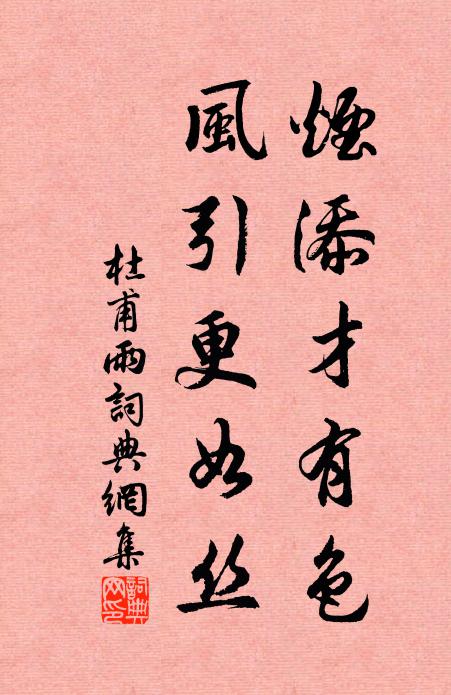 煙添才有色
風引更如丝
杜甫雨詞典網集
詞典
网印